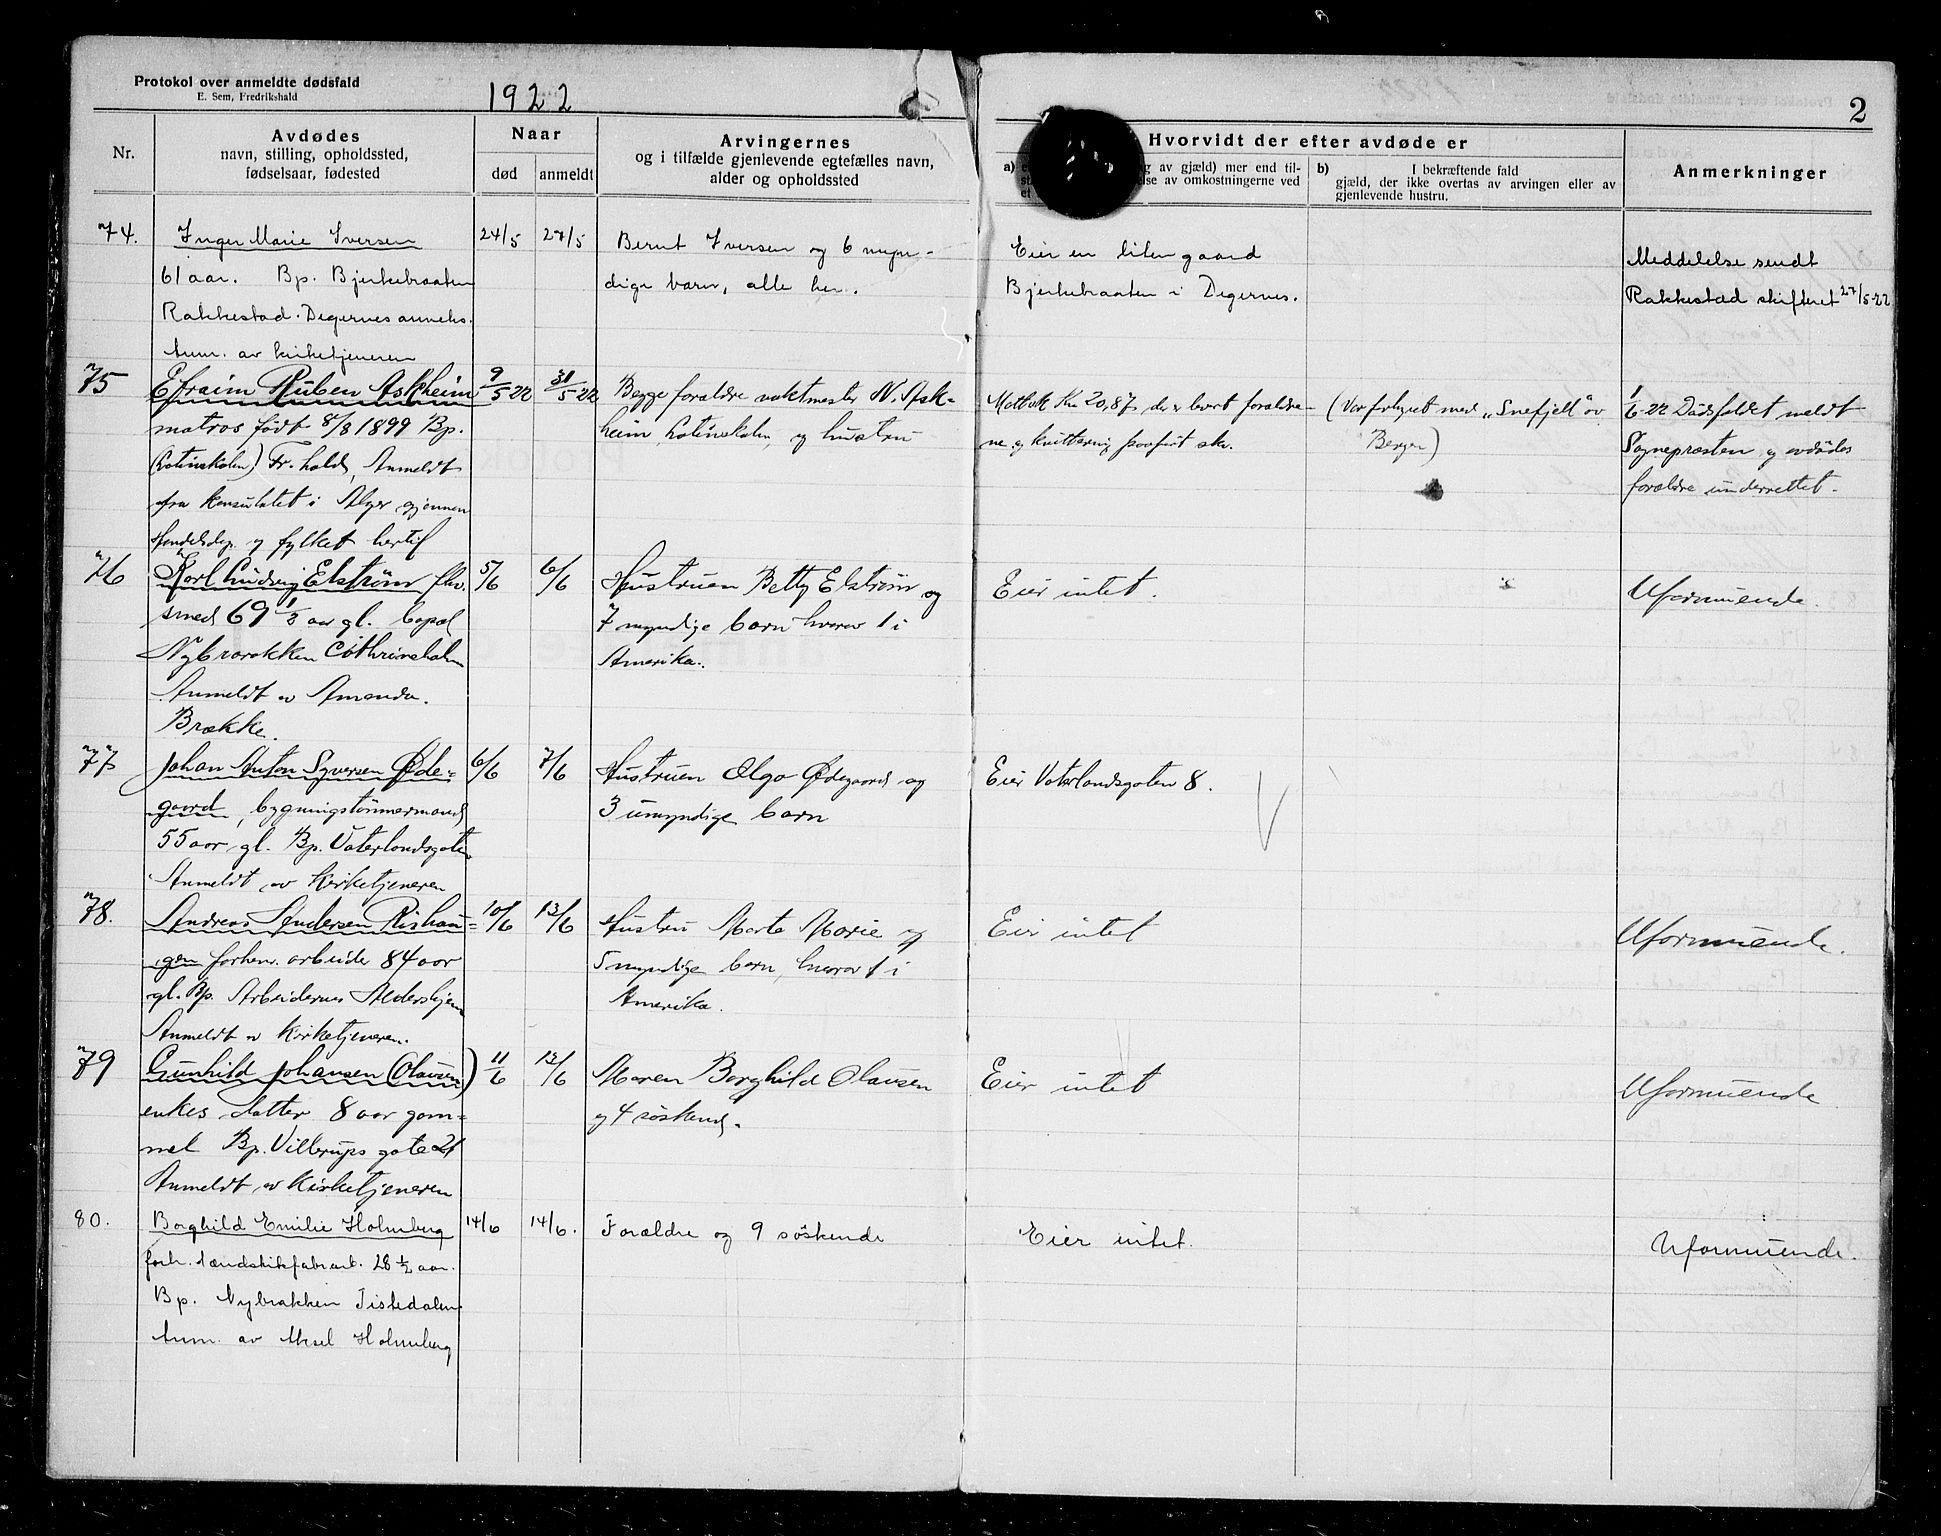 Protokol over anmeldte dødsfald
E. Sem, Fredrikshald
1922
2
Nr.
Avdødes
navn, stilling, opholdssted,
fødselsaar, fødested
Naar
død
anmeldt
Arvingernes
og i tilfælde gjenlevende egtefælles navn,
alder og opholdssted
Hvorvidt der efter avdøde er
a)
g av gjæld) mer end til-
else av omkostningerne ved
et
b) I bekræftende fald
gjæld, der ikke overtas av arvingen eller av
gjenlevende hustru.
Anmerkninger
74.
Inger Marie Iversen
61 aar. Bp. Bjerkebraaten
Rakkestad. Degernes anneks.
Anm. av kirketjeneren
24/5
27/5
Bernt Iversen og 6 myn-
dige barn, alle her.
Eier en liten gaard
Bjerkebraaten i Degernes.
Meddelelse sendt
Rakkestad skifteret 27/5-22
75
Efraim Ruben Askheim
matros født 8/8 1899 Bp.
(Latinskolen) Fr.hald, Anmeldt
fra konsulatet i Alger gjennem
Handelsdep. og fylket hertil
9/5 22
31/5 22
Begge forældre vaktmester N. Ask-
heim Latinskolen og hustru
Kr 20,87 der er levert forældre-
ne og kvittering paaført skr.
(Var forhyret med „Snefjell" av
Bergen)
1/6-22 Dødsfaldet meldt
Sognepresten og avdødes
forældre underrettet.
76
Karl Ludvig Elstrøm fhv.
smed 69 1/2 aar gl. bopæl
Nybrarakken Cathrineholm
Anmeldt av Amanda
Brække.
5/6
6/6
Hustruen Betty Elstrøm og
7 myndige barn hvorav 1 i
Amerika.
Eier intet.
Uformuende.
77
Johan Anton Syversen Øde-
gaard, bygningstømmermand
55 aar gl. Bp. Vaterlandsgaten
Anmeldt av Kirketjeneren
6/6
7/6
Hustruen Olga Ødegaard og
3 umyndige barn
Eier Vaterlandsgaten 8.
78.
Andreas Andersen Rishau-
gen forhenv. arbeider 84 aar
gl. Bp. Arbeidernes Aldershjem
Anmeldt av Kirketjeneren.
10/6
13/6
Hustru Marte Marie og
5 myndige barn, hvorav 1 i
Amerika.
Eier intet
Uformuende.
79
Gunhild Johansen (Olausen)
enkes datter 8 aar gam-
mel Bp. Villerups gate 21
Anmeldt av Kirketjeneren
11/6
13/6
Maren Borghild Olausen
og 4 søskend.
Eier intet
Uformuende
80.
Borghild Emilie Holmberg
forh. tændstikfabr.arb. 28 1/2 aar.
Bp. Nybrakken Tistedalen
Anm. av Aksel Holmberg
14/6
14/6.
Forældre og 9 søskende
Eier intet.
Uformuende.